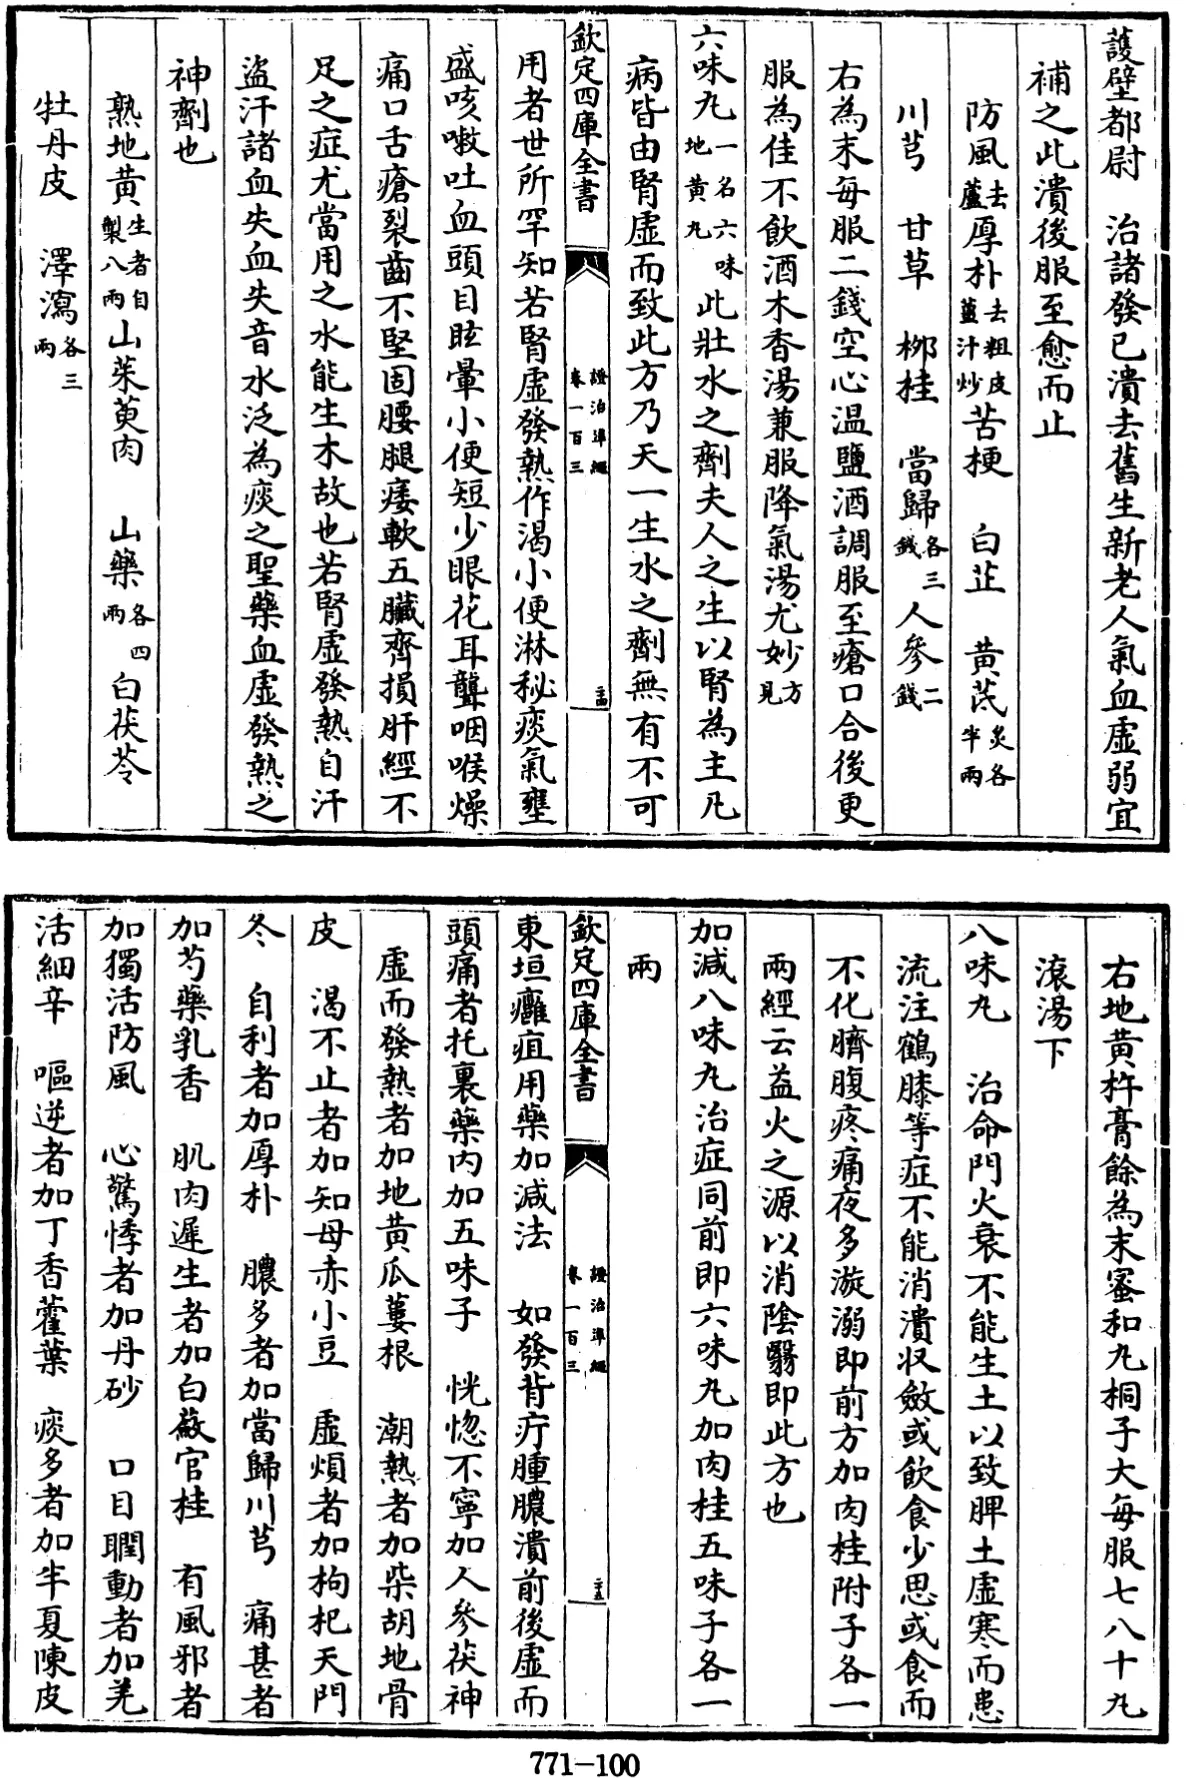 護壁都尉　治諸發已潰去舊生新老人氣血虛弱宜
補之此潰後服至愈而止
防風去蘆厚朴去粗皮薑汁炒苦梗　白芷　黄芪炙各半兩
川芎　甘草　桞桂　當歸各三錢人參二錢
右為末每服二錢空心温鹽酒調服至瘡口合後更
服為佳不飲酒木香湯兼服降氣湯尤妙方見
六味丸一名六味地黄丸此壯水之劑夫人之生以腎為主凡
病皆由腎虛而致此方乃天一生水之劑無有不可
欽定四庫全書　證治準繩卷一百三　二十四
用者世所罕知若腎虛發熱作渴小便淋秘痰氣壅
盛咳嗽吐血頭目眩暈小便短少眼花耳聾咽喉燥
痛口舌瘡裂齒不堅固腰腿痿軟五臟齊損肝經不
足之症尤當用之水能生木故也若腎虛發熱自汗
盜汗諸血失血失音水泛為痰之聖藥血虛發熱之
神劑也
熟地黄生者自製八兩山茱萸肉　山藥各四兩白茯苓
牡丹皮　澤瀉各三兩
右地黄杵膏餘為末蜜和丸桐子大每服七八十丸
滾湯下
八味丸　治命門火衰不能生土以致脾土虛寒而患
流注鶴膝等症不能消潰収斂或飲食少思或食而
不化臍腹疼痛夜多漩溺即前方加肉桂附子各一
兩經云益火之源以消陰翳即此方也
加減八味丸治症同前即六味丸加肉桂五味子各一
兩
欽定四庫全書　證治準繩卷一百三　二十五
東垣癰疽用藥加減法　如發背疔腫膿潰前後虛而
頭痛者托裏藥内加五味子　恍惚不寧加人參茯神
虛而發熱者加地黄瓜蔞根　潮熱者加柴胡地骨
皮　渴不止者加知母赤小豆　虛煩者加枸杞天門
冬　自利者加厚朴　膿多者加當歸川芎　痛甚者
加芍藥乳香　肌肉遲生者加白蘞官桂　有風邪者
加獨活防風　心驚悸者加丹砂　口目瞤動者加羌
活細辛　嘔逆者加丁香藿葉　痰多者加半夏陳皮
771-100